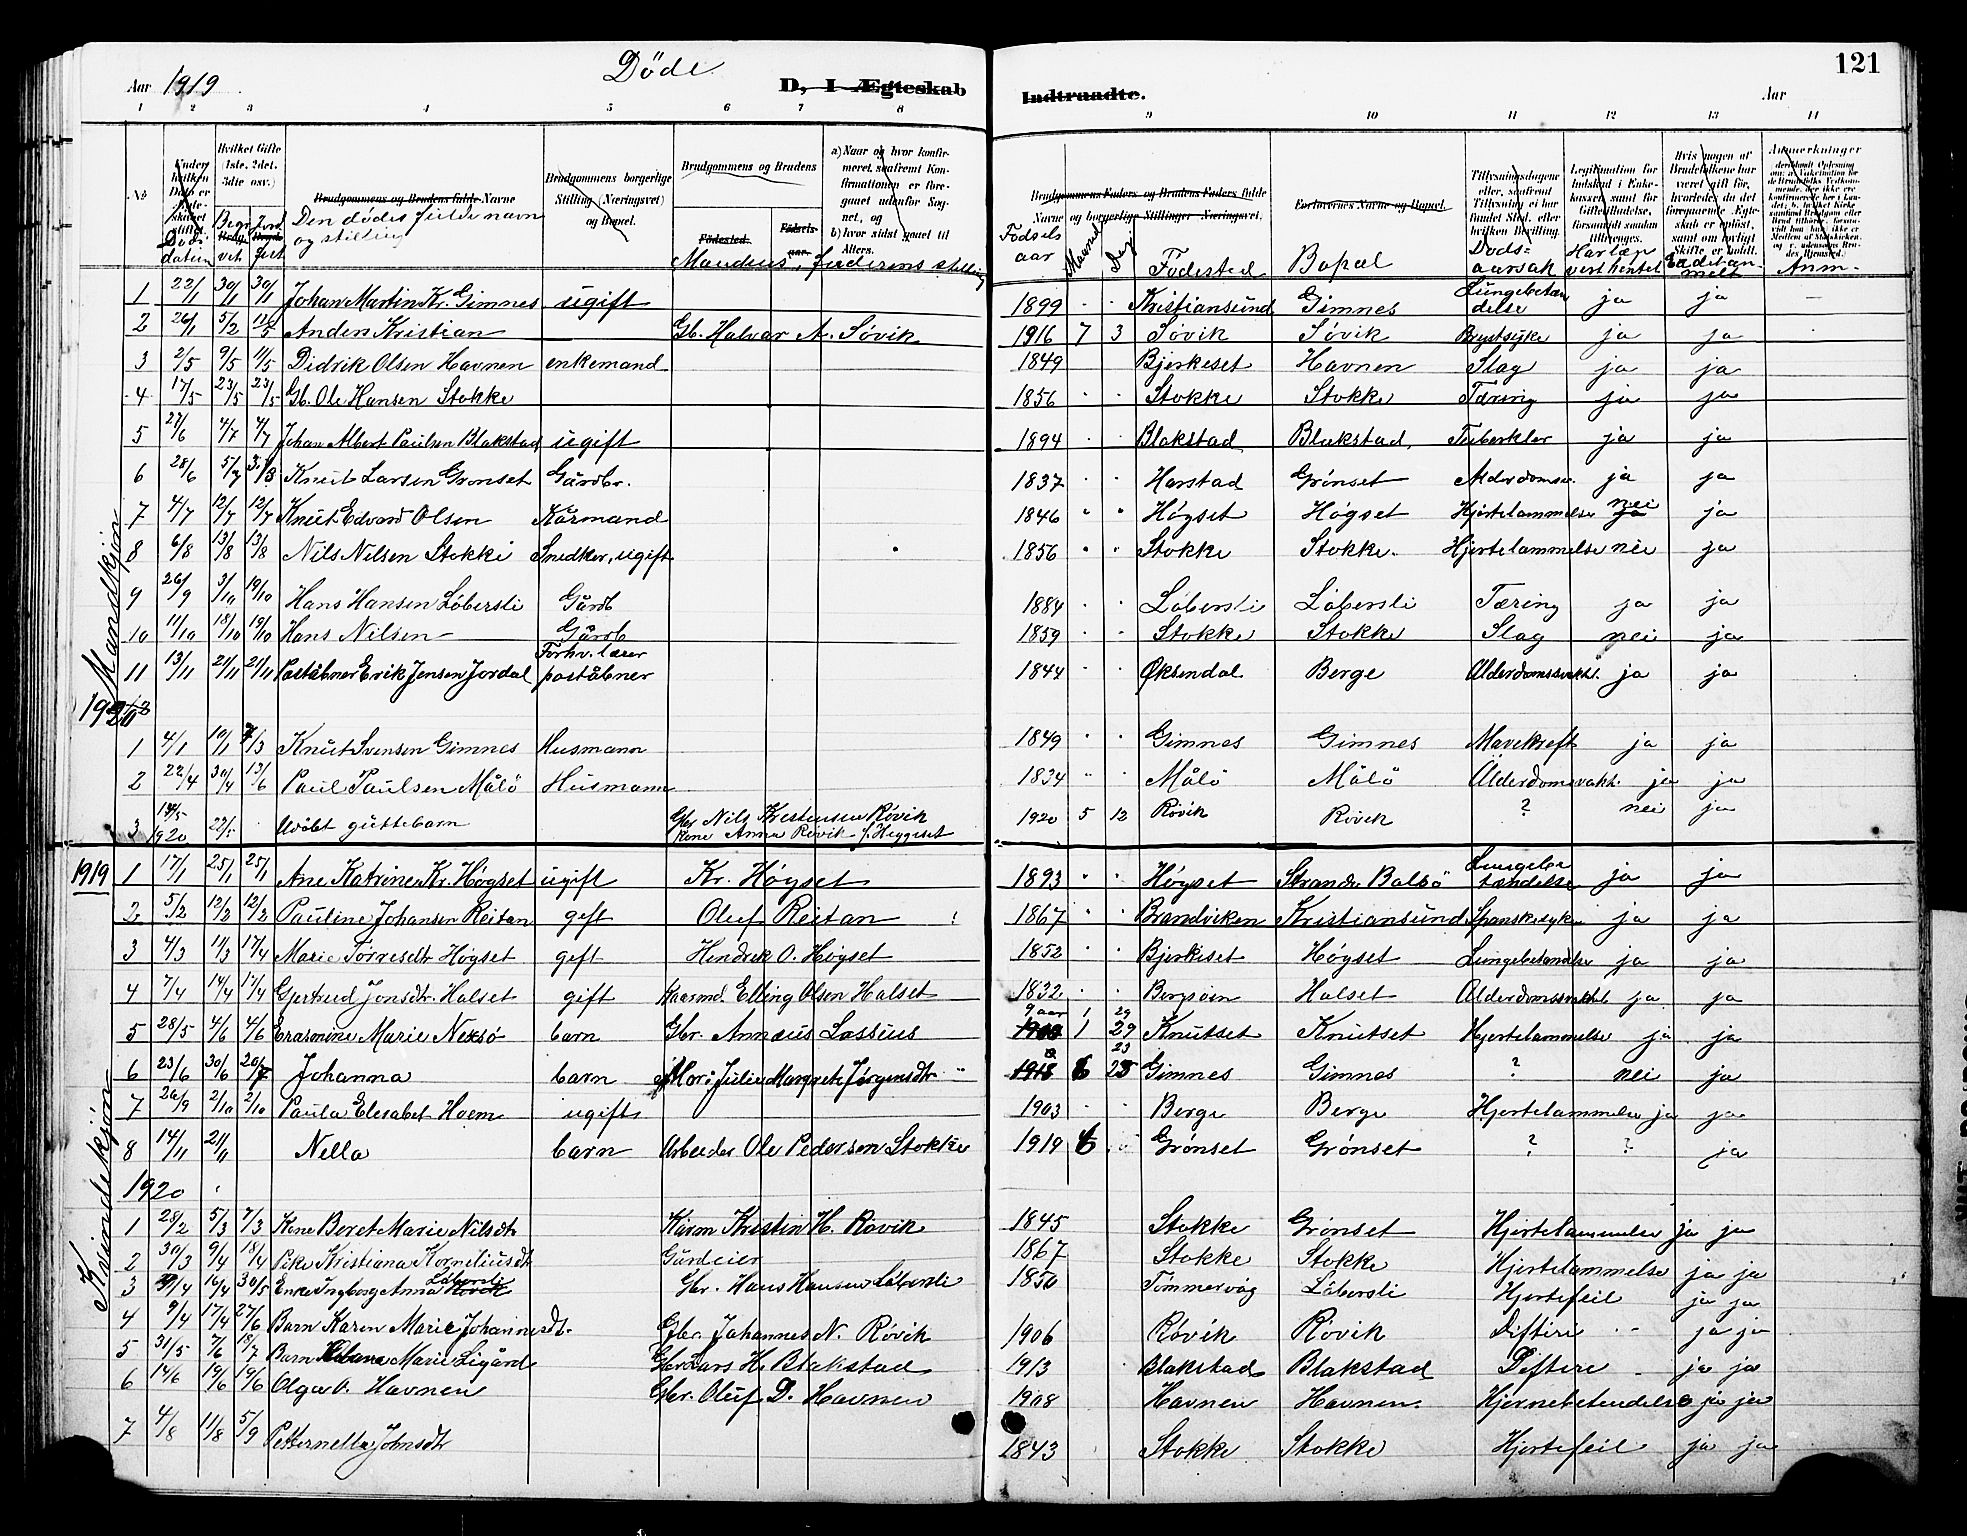 121
Aar 1919 Døde D, I Ægteskab Indtraadte. Aar
1 2 3 4 5 6 7 8 9 10 11 12 13 14
No Døds datum Begr. Jord fest Den dødes fulde navn og stilling Mandens, faderens stilling Fødsels aar Maaned Dag Fødested Bopæl Døds- aarsak Har læge vært hentet Anm-
Brudgommens og Brudens fulde Navne
Brudgommens borgerlige Stilling (Næringsvei) og Bopæl.
Brudgommens og Brudens
Fødested. Fødsels-aar.
Hvilket Gifte (1ste. 2det. 3die osv.)
a) Naar og hvor konfirmeret, saafremt Konfirmationen er foregaaet udenfor Sognet, og b) hvor sidst gaaet til Alters.
Brudgommens Faders og Brudens Faders fulde Navne og borgerlige Stillinger Næringsvei.
Forlovernes Navne og Bopæl.
Mandkjøn
1 22/1 30/1 30/1 Johan Martin Kr. Gimnes ugift 1899 Kristiansund Gimnes Lungebetændelse ja ja
2 26/1 5/2 11/5 Anders Kristian Gb. Halvar A. Søvik 1916 7 3 Søvik Søvik Brystsyke ja ja
3 2/5 9/5 11/5 Didrik Olsen Havnen enkemand 1849 Bjerkeset Havnen Slag ja ja
4 17/5 23/5 23/5 Gb. Ole Hansen Stokke 1856 Stokke Stokke Tæring ja ja
5 27/6 4/7 4/7 Johan Albert Paulsen Blakstad ugift 1894 Blakstad Blakstad, Tuberkler ja ja
6 28/6 5/7 Knut Larsen Grønset Gårdbr. 1837 Harstad Grønset ja ja
7 4/7 12/7 12/7 Knut Edvard Olsen Kårmand 1846 Høgset Høgset Hjertelammelse nei ja ja
8 6/8 13/8 13/8 Nils Nilsen Stokke Snedker, ugift 1856 Stokke Stokke. Hjertelammelse nei ja
9 26/9 3/10 19/10 Hans Hansen Løbersli Gårdb 1884 Løbersli Løbersli Tæring ja ja
10 11/10 18/10 19/10 Hans Nilsen Gårdb 1859 Stokke Stokke Slag nei ja
11 13/11 21/11 21/11 Postålner Erik Jensen Jordal Forhv. lærer postålner 1844 Øksendal Berge Alderdomssvakh. ja ja
1920
1 4/1 10/1 7/3 Knut Svensen Gimnes Husmann 1849 Gimnes Gimnes Mavekreft ja ja
2 22/4 30/4 13/6 Paul Paulsen Målø Husmann 1834 Målø Målø Alderdomsvakh. ja ja
3 14/5 1920 22/5 Udøbt guttebarn Gbr Nils Kristensen Røvik kone Anna Røvik f. Heggeset 1920 5 12 Røvik Røvik ? nei ja
1919
Kvindekjøn
1 17/1 25/1 25/1 Ane Katrine Kr. Høgset ugift Kr. Høgset 1893 Høgset Strande Balsø Lungebetændelse ja ja
2 5/2 12/2 12/2 Pauline Johansen Reitan gift Oluf Reitan 1867 Brandviken Kristiansund Spanskesyke ja ja
3 4/3 11/3 17/4 Marie Torresdtr Høgset gift Hendrik O. Høgset 1852 Bjerkeset Høgset Lungebetændelse ja ja
4 7/4 14/4 17/4 Gjertrud Jonsdtr. Halset gift Kaarmd. Elling Olsen Halset 1832 Bergsøen Halset Alderdomssvakh. ja ja
5 28/5 4/6 4/6 Erasmine Marie Neksø barn Gbr. Annæus Lossius 9 aar 1 29 Knutset Knutset Hjertelammelse ja ja
6 23/6 30/6 20/7 Johanna barn Mor: Julie Margrete Jørgensdtr 1918 6 23 Gimnes Gimnes ? nei ja
7 26/9 2/10 2/10 Paula Elesabet Hoem ugift 1903 Berge Berge Hjertelammelse ja ja
8 14/11 21/11 Nella barn Arbeider Ole Pedersen Stokke 1919 6 Grønset Grønset ? ? ja
1920
1 28/2 5/3 7/3 Kone Beret Marie Nilsdtr Kårm Kristin H. Røvik 1845 Stokke Grønset Hjertelammelse ja ja
2 30/3 9/4 18/4 Pike Kristiana Korneliusdt Gårdeier 1867 Stokke Stokke Hjertelammelse ja ja
3 9/4 16/4 30/5 Enke Ingborg Anna Løbersli Gbr. Hans Hansen Løbersli 1850 Tømmervåg Løbersli Hjertefeil ja ja
4 9/4 17/4 27/6 Barn Karen Marie Johannesdt. Gbr. Johannes N. Røvik 1906 Røvik Røvik Difteri ja ja
5 31/5 7/6 19/7 Barn Marie Ligård Gbr Lars H. Blakstad 1913 Blakstad Blakstad Difteri ja ja
6 14/6 19/6 19/6 Olga O. Havnen Gbr. Oluf D. Havnen 1908 Havnen Havnen Hjernebetendelse ja ja
7 4/8 11/8 5/9 Petternella Johnsdt 1843 Stokke Stokke Hjertefeil ja ja